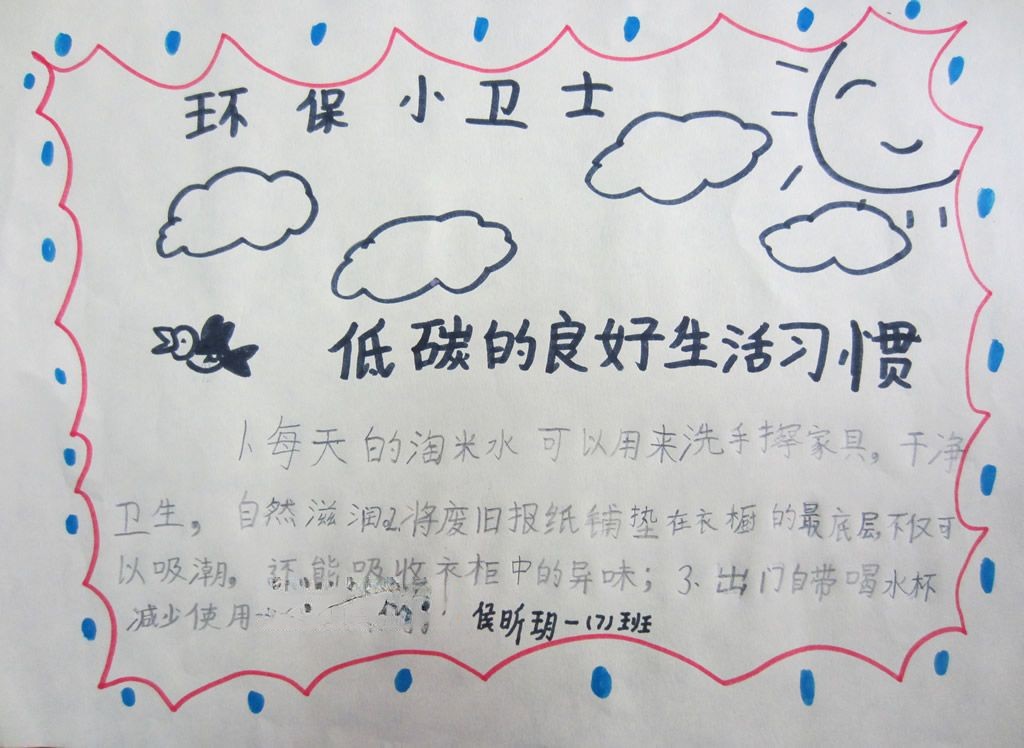 环保小卫士
低碳的良好生活习惯
1、每天的淘米水可以用来洗手擦家具,干净
卫生,自然滋润2、将废旧报纸铺垫在衣橱的最底层,不仅可
以吸潮,还能吸收衣柜中的异味;3、出门自带喝水杯
减少使用一
侯昕玥一(7)班